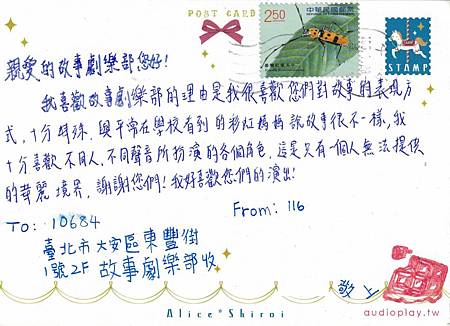 POST CARD
中華民國郵票
2.50
STAMP
親愛的故事劇樂部您好!
我喜歡故事劇樂部的理由是我很喜歡您們對故事的表現方
式,十分特殊.與平常在學校看到的彩虹媽媽說故事很不一樣,我
十分喜歡不同人,不同聲音所扮演的各個角色,這是只有一個人無法提供
的華麗境界,謝謝您們!我好喜歡您們的演出!
TO: 10684
From: 116
臺北市大安區東豐街
1號2F 故事劇樂部收
敬上
Alice*Shiroi
audioplay.tw